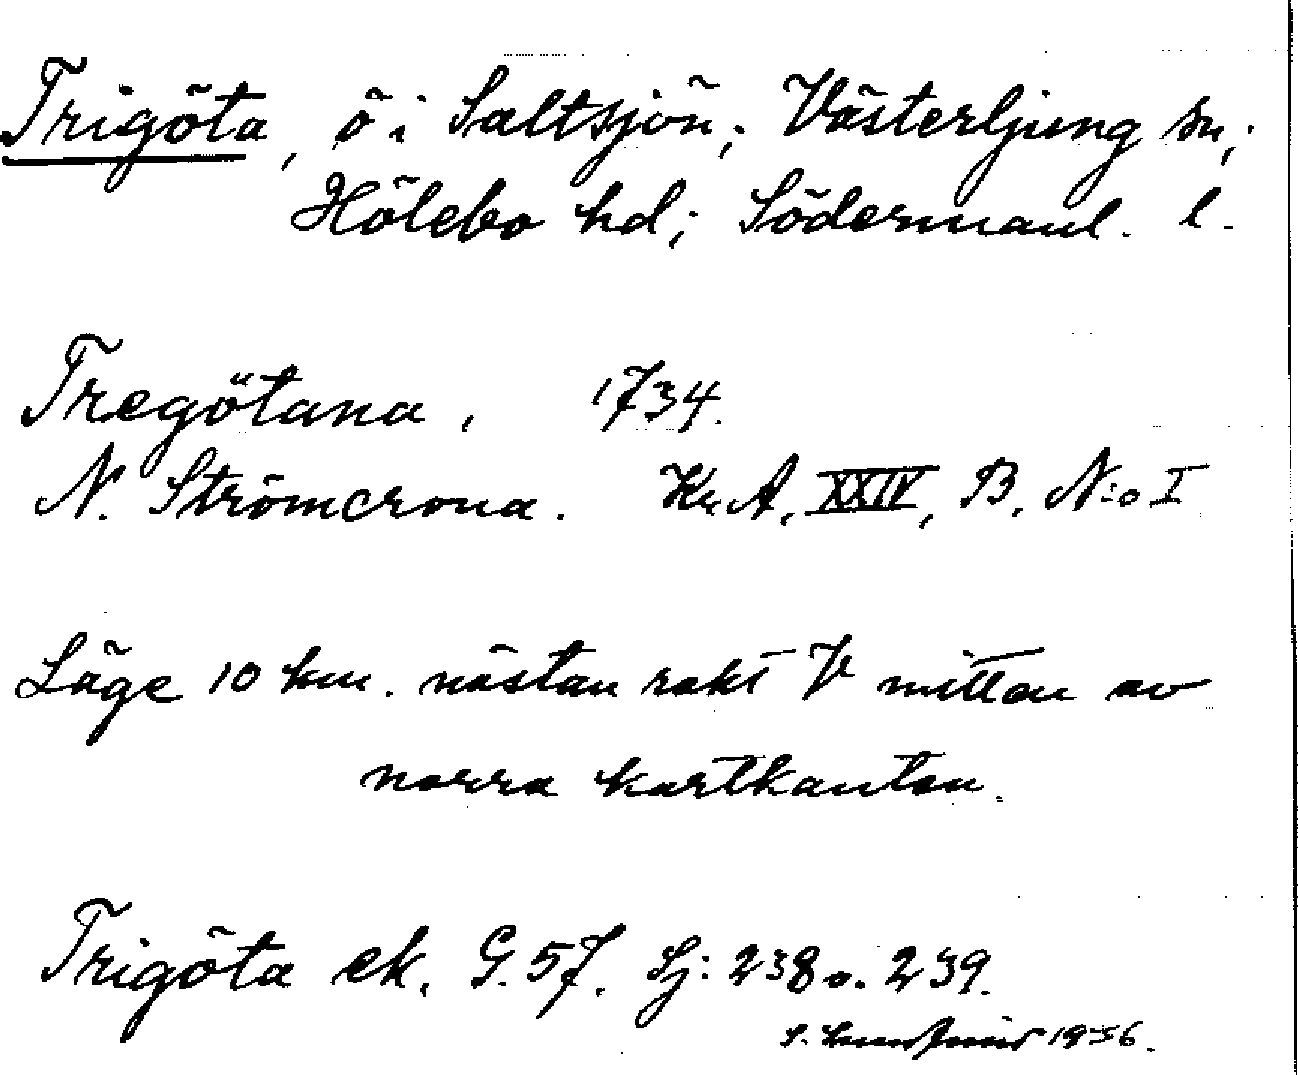 Trigöta, ö i Saltsjön; Västerljung sn;
Hölebo hd; Södermanl. l.
Tregötana, 1734.
N. Strömcrona. Kr. A. XXIV, B. N:o I
Läge 10 km. nästan rakt V mitten av
norra kartkanten.
Trigöta ek. G. 57. Sj: 238 o. 239.
S. 1956.